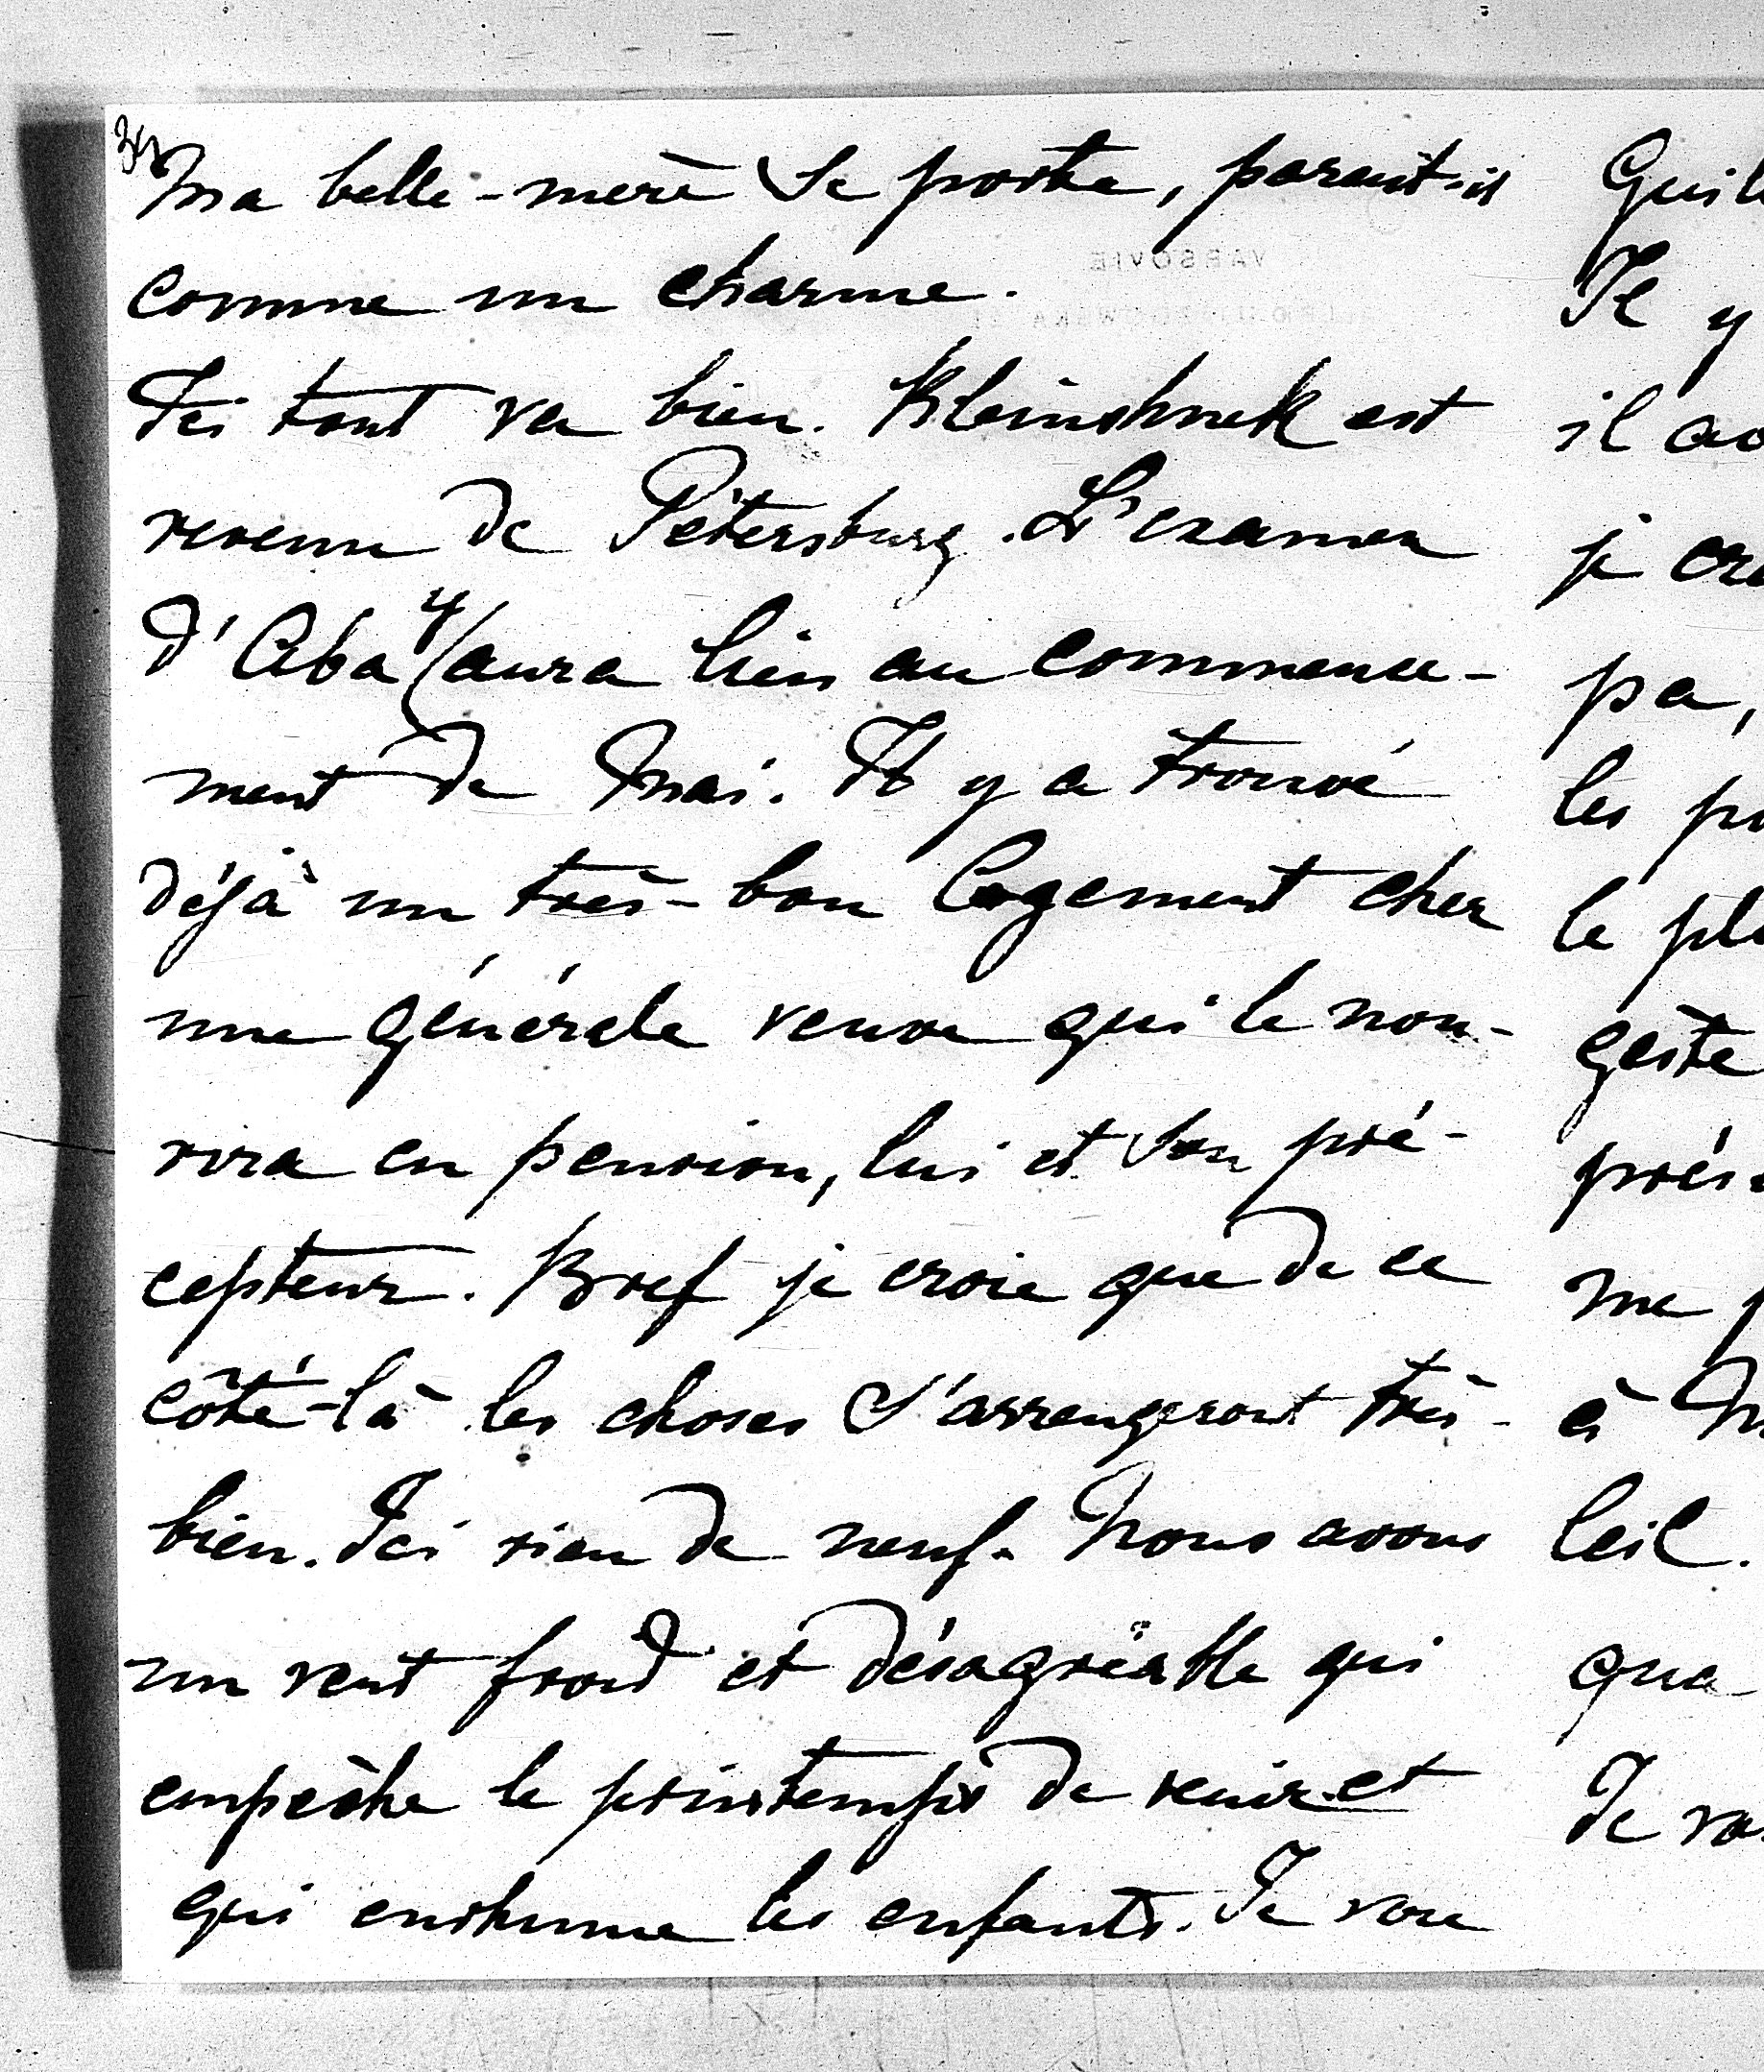 34
Ma belle-mère se porte, parait-il
comme un charme.
Ici tout va bien. Kleinshnek est
revenu de Pétersburg. L'examen
d'Aba 4/ aura lieu au commence-
ment de Mai. Il y a trouvé
déjà un très-bon logement chez
une générale veuve qui le nou-
rira en pension, lui et son pré-
cepteur. Bref je crois que de ce
côté-là les choses s'arrangeront très-
bien. Ici rien de neuf. Nous avons
un vent froid et désagréable qui
empêche le printemps de venir et
qui enrhume les enfants. Je vou
VARSOVIE
Il y
il
je
pa,
les
le
geste
me
à
leil.
que
Je